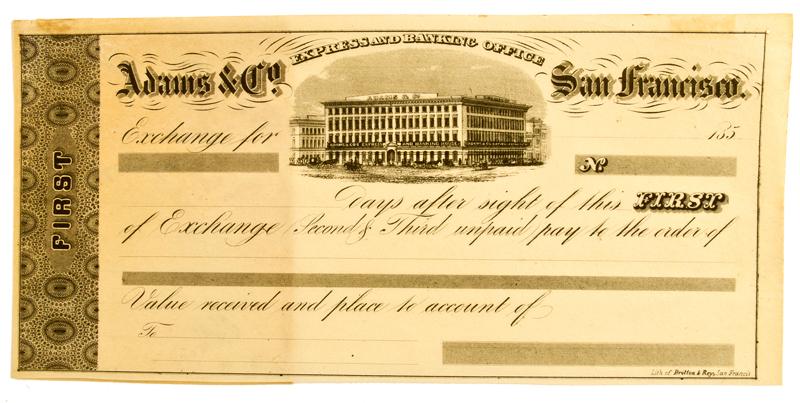 EXPRESS AND BANKING OFFICE
Adams & Co. San Francisco.
ADAMS & Co
Exchange for 185
ADAMS & COS EXPRESS AND BANKING HOUSE
No
Days after sight of this FIRST
of Exchange (Second & Third unpaid) pay to the order of
Value received and place to account of
To
Lith of Britton & Rey, San Francis
FIRST